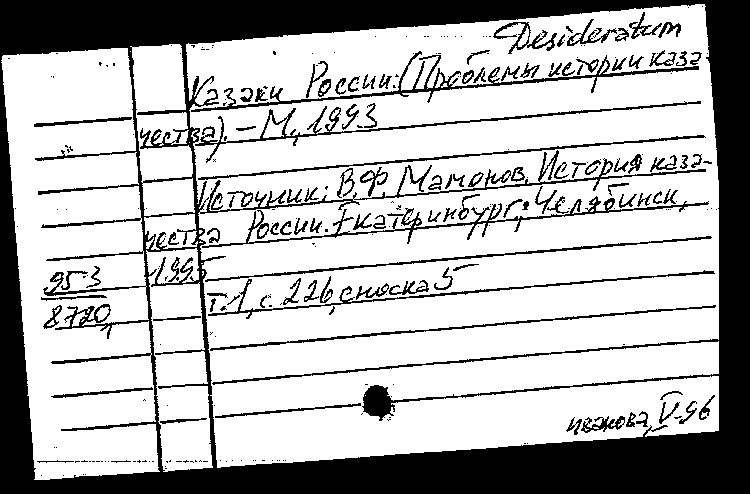 Desideratum
Казаки России: (Проблемы истории каза-
чества). – М., 1993
Источник: В.Ф. Мамонов. История каза-
чества России. Екатеринбург; Челябинск,
1995
953
8720,1
т.1, с. 226, сноска 5
иванова, V-96